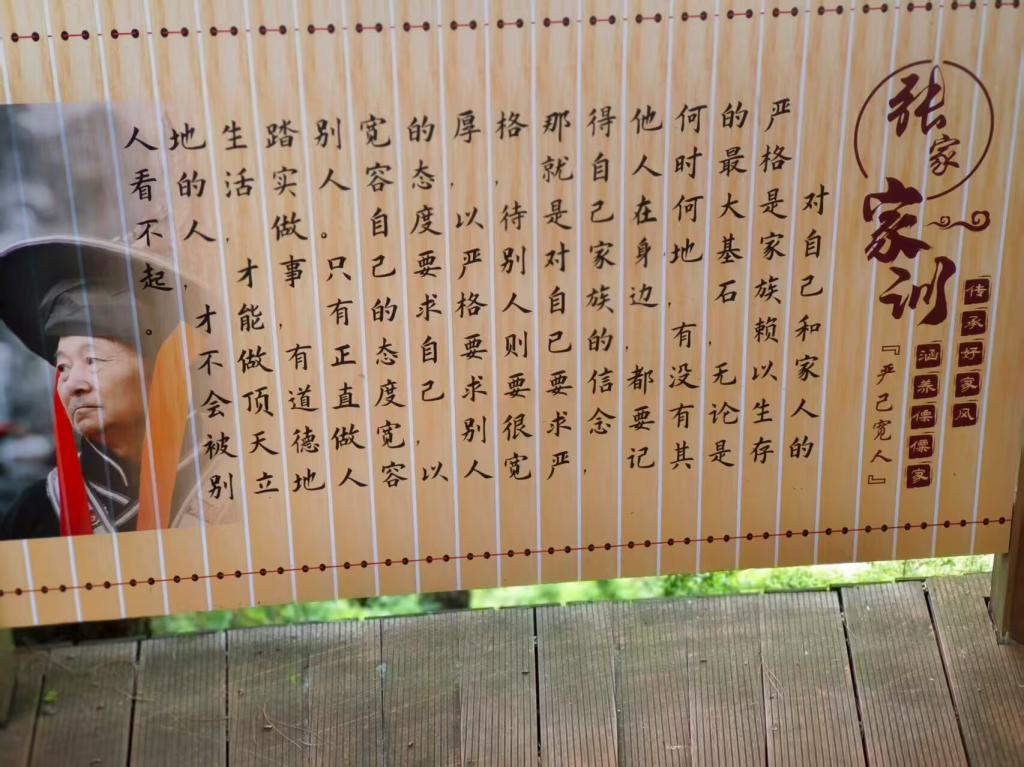 张家
家训
传承好家风
涵养傈傈家
『严己宽人』
对自己和家人的
严格是家族赖以生存
的最大基石,无论是
何时何地,有没有其
他人在身边,都要记
得自己家族的信念,
那就是对自己要求严
格,待别人则要很宽
厚,以严格要求别人
的态度要求自己,以
宽容自己的态度宽容
别人。只有正直做人
踏实做事,有道德地
生活,才能做顶天立
地的人,才不会被别
人看不起。